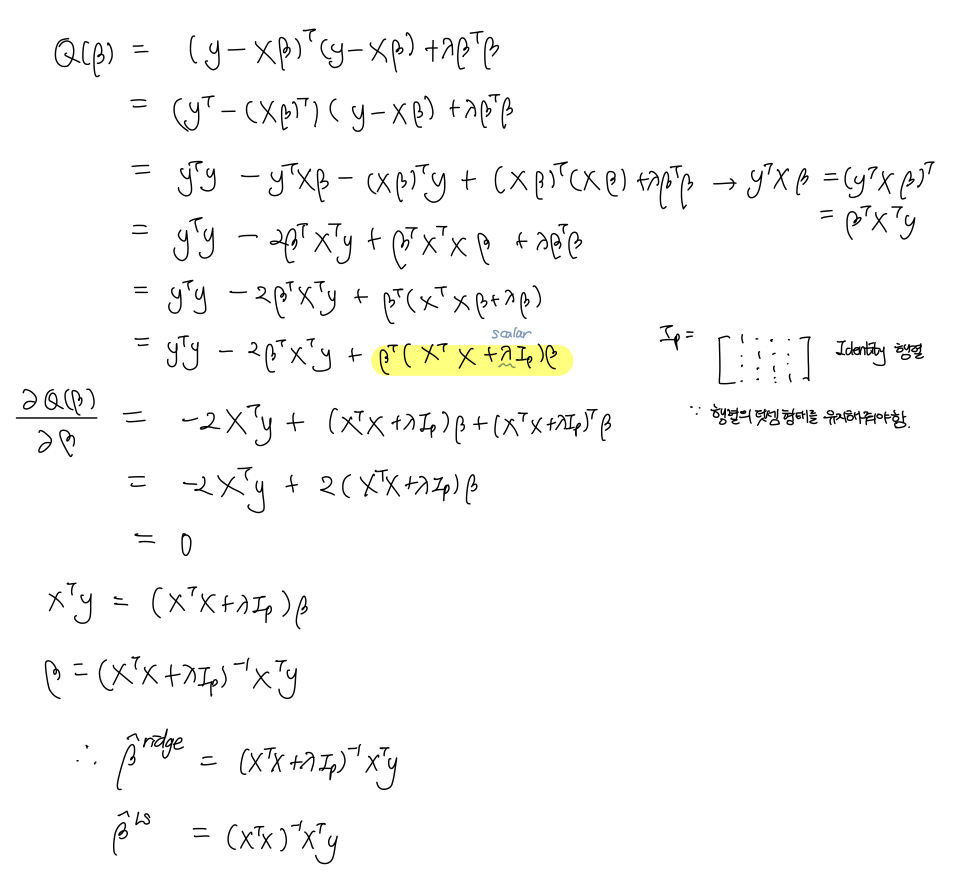 Q(β) = (y − Xβ)ᵀ(y − Xβ) + λβᵀβ
= (yᵀ − (Xβ)ᵀ)(y − Xβ) + λβᵀβ
= yᵀy − yᵀXβ − (Xβ)ᵀy + (Xβ)ᵀ(Xβ) + λβᵀβ → yᵀXβ = (yᵀXβ)ᵀ
= βᵀXᵀy
= yᵀy − 2βᵀXᵀy + βᵀXᵀXβ + λβᵀβ
= yᵀy − 2βᵀXᵀy + βᵀ(XᵀXβ + λβ)
scalar
= yᵀy − 2βᵀXᵀy + βᵀ(XᵀX + λIₚ)β
Iₚ = [1 . . . 1] Identity 행렬
∵ 행렬의 덧셈 형태를 유지해줘야함.
∂Q(β)/∂β = −2Xᵀy + (XᵀX + λIₚ)β + (XᵀX + λIₚ)ᵀβ
= −2Xᵀy + 2(XᵀX + λIₚ)β
= 0
Xᵀy = (XᵀX + λIₚ)β
β = (XᵀX + λIₚ)⁻¹Xᵀy
∴ β̂ ridge = (XᵀX + λIₚ)⁻¹Xᵀy
β̂ LS = (XᵀX)⁻¹Xᵀy